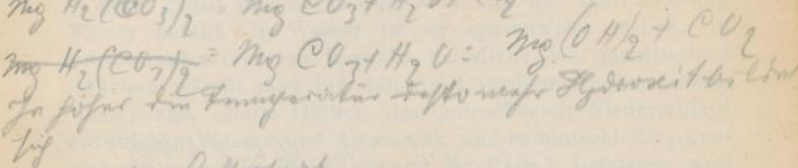 Mg H2(CO3)2 = Mg CO3 + H2O
Mg H2(CO3)2 = Mg CO3 + H2O = Mg(OH)2 + CO2
Je höher die Temperatur desto mehr Hydroxit bilden
sich